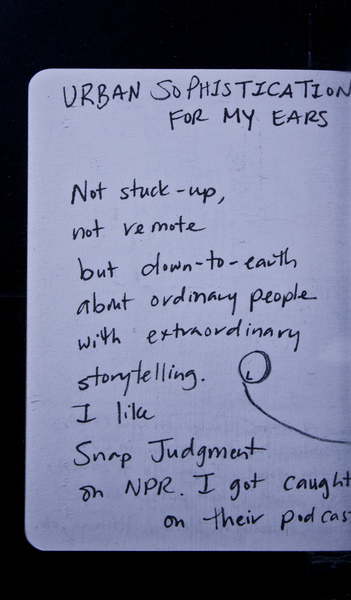 URBAN SOPHISTICATION
FOR MY EARS
Not stuck-up,
not remote
but down-to-earth
about ordinary people
with extraordinary
storytelling.
I like
Snap Judgment
on NPR. I got caught
on their podcas